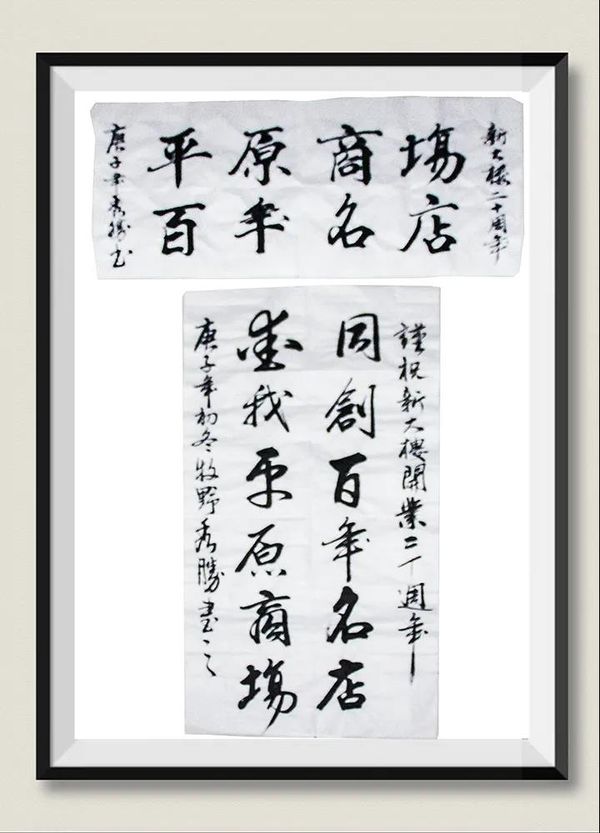 新大樓二十周年
平原商場
百年名店
庚子年秀勝书
謹祝新大樓開業二十週年
同創百年名店
愛我平原商場
庚子年初冬牧野秀勝書之